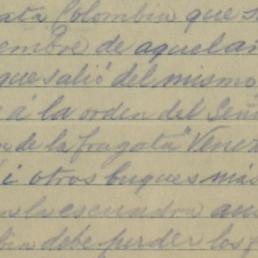 ata Colombia que s
iembre de aquel añ
que salió del mismo
á la orden del Señ
n de la fragata "Venez
i otros buques más
la escuadra
bia debe perder los